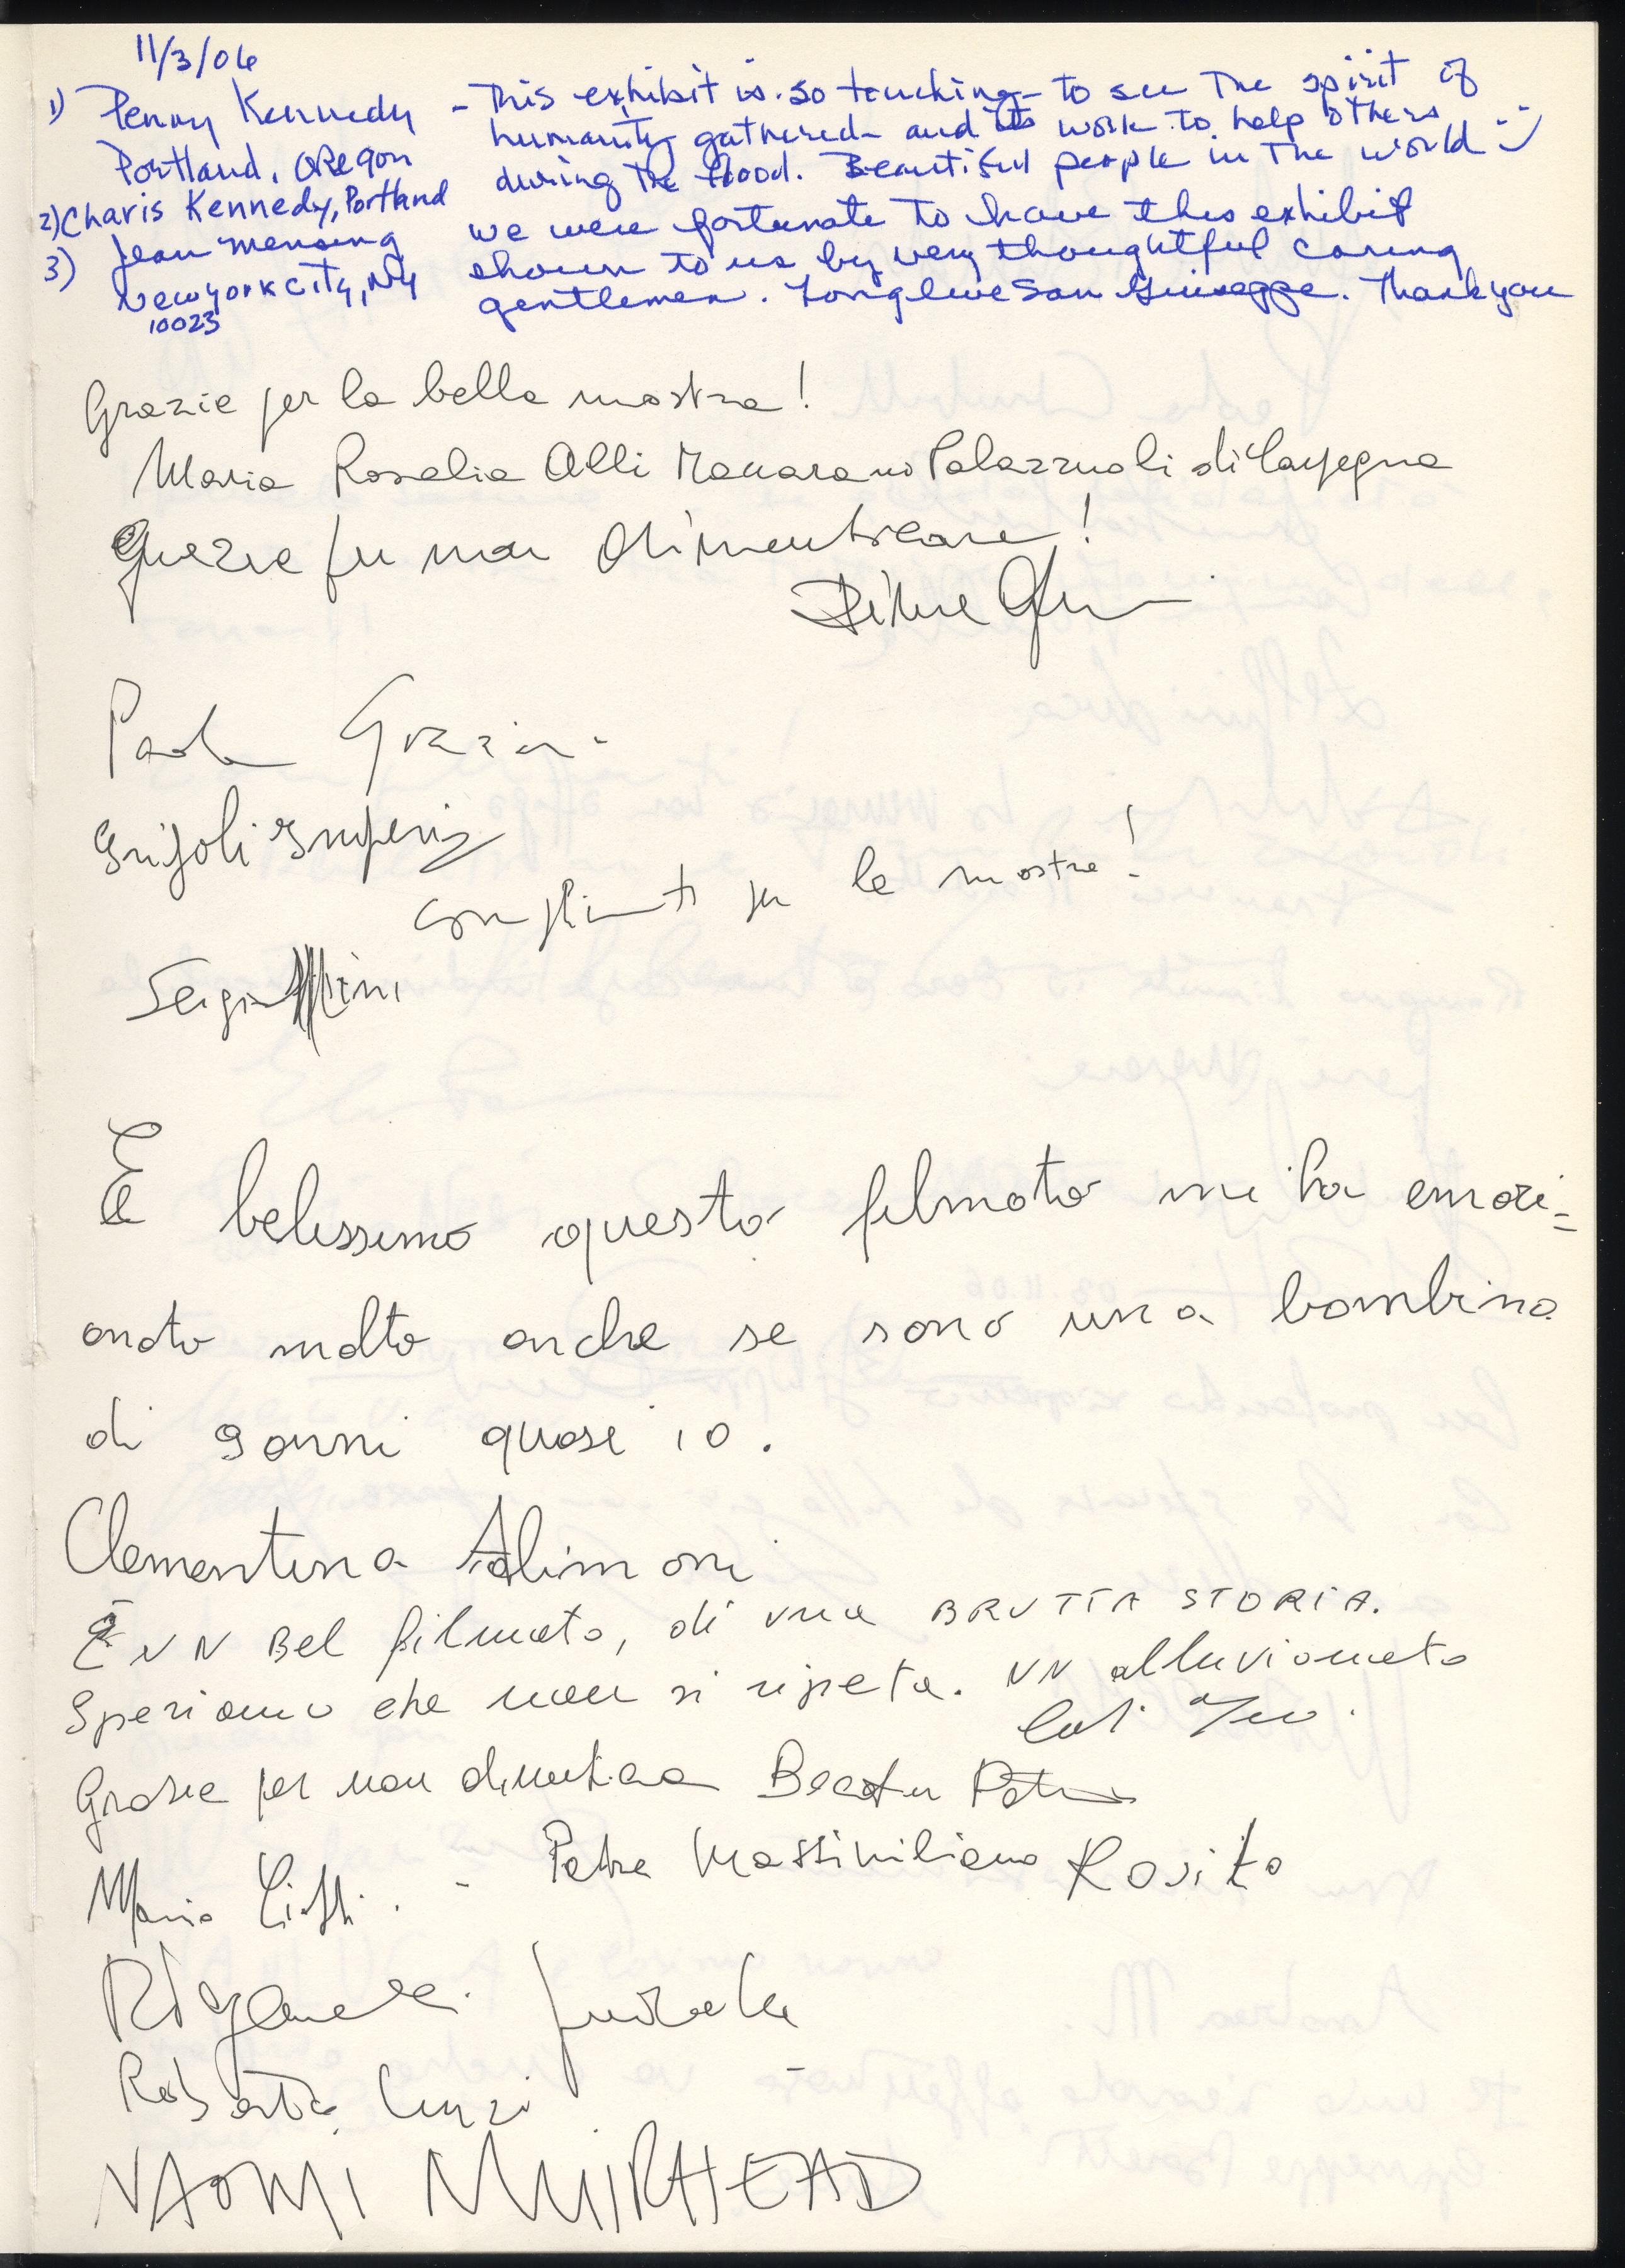 11/3/06
1) Penny Kennedy
Portland, Oregon
2) Charis Kennedy, Portland
3) Jean Mensing
New York City, NY
10023
- This exhibit is so touching - to see The spirit of
humanity gathered and its work to help others
during the flood. Beautiful people in The world
we were fortunate to have this exhibit
shown to us by very thoughtful caring
gentlemen. Long live San Giuseppe. Thank you
Grazie per la bella mostra!
Maria Rosalia Alli Maccarani Palazzuoli di Carpegna
Grazie per non dimenticare!
Paola Grazin
Grifoli
Complimenti per la mostra!
Sergio
È belissimo questo filmato mi ha emozi=
onato molto anche se sono una bambina
di 9 anni quasi 10.
Clementina Alimoni
È UN BEL filmato, di una BRUTTA STORIA.
Speriamo che non si ripeta. UN alluvionato
Grazie per non dimenticare
Mario - Petra Massimiliano Rosito
Roberta
NAOMI MUIRHEAD